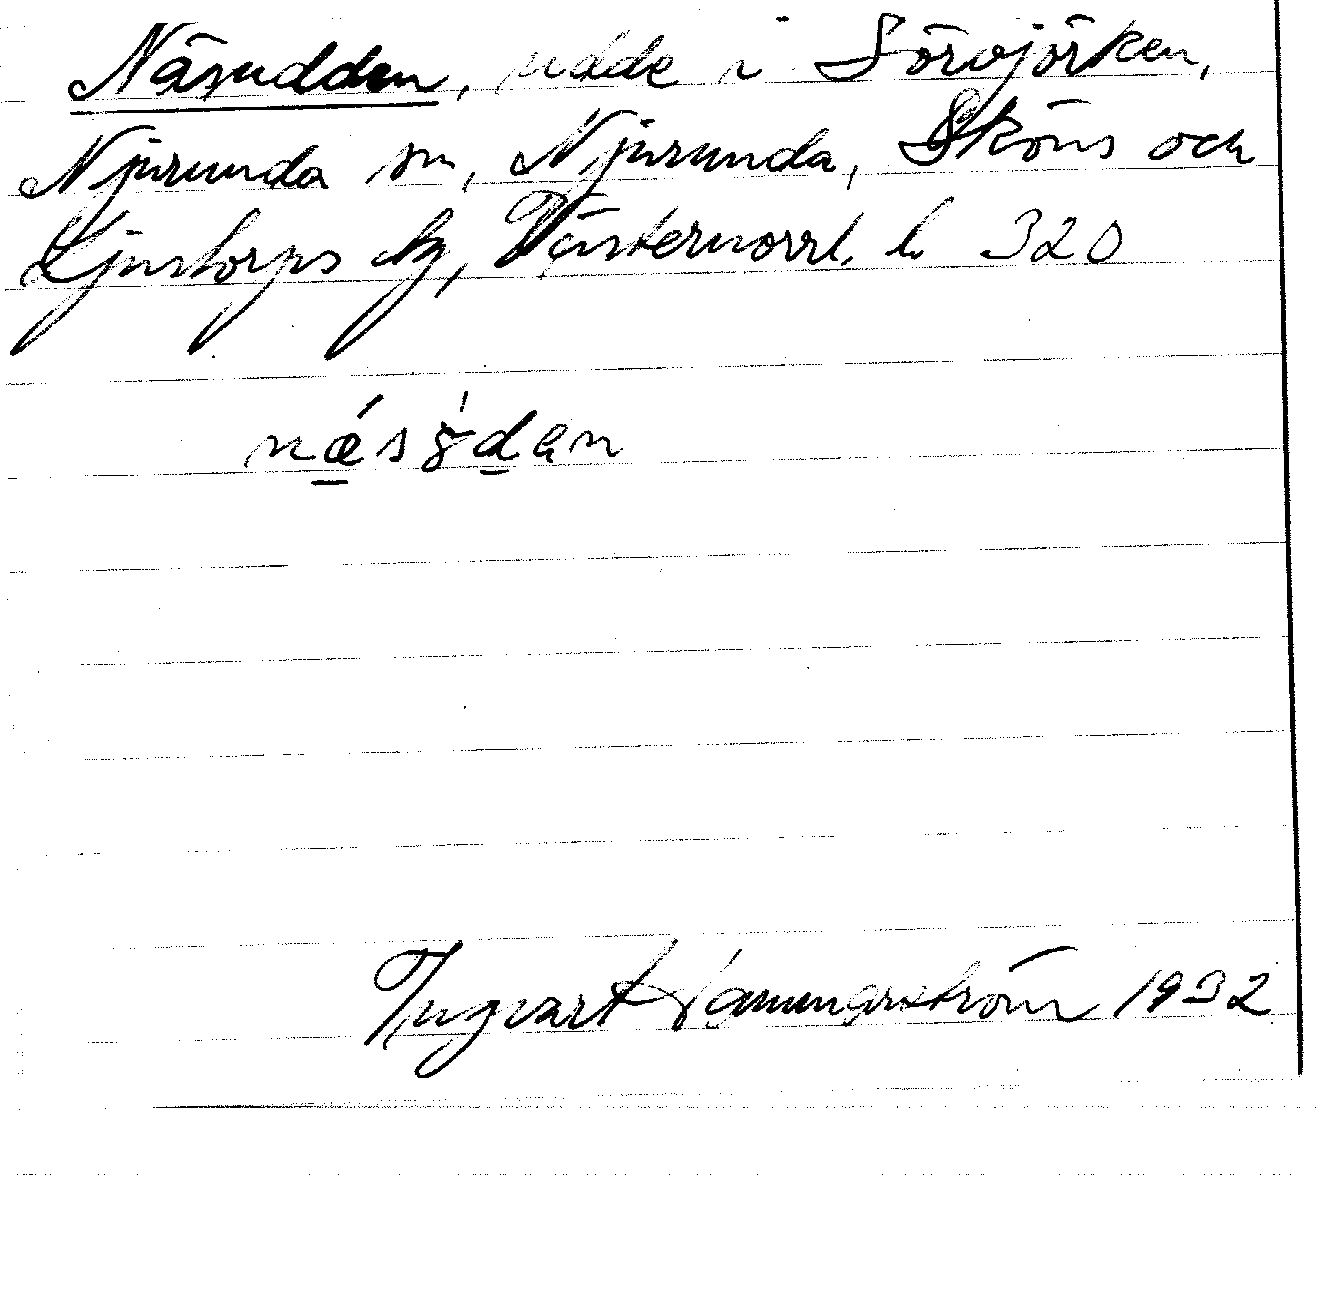 Näsudden, udde i Sörvjörken,
Njurunda sn, Njurunda, Sköns och
Ljustorps tg, Västernorrl. l. 320
nǽsꝏ̍dan
Ingvart Hammarström 1932